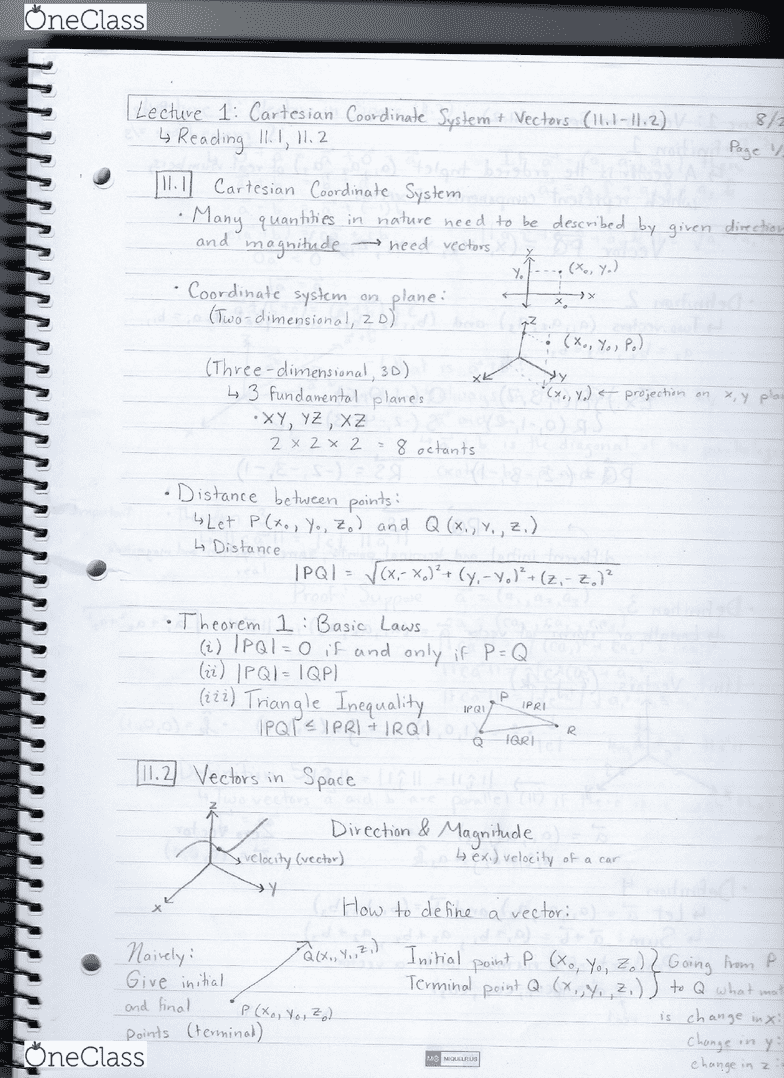 OneClass
Lecture 1: Cartesian Coordinate System + Vectors (11.1-11.2)
8/2
↳ Reading 11.1, 11.2
Page 1/
11.1 Cartesian Coordinate System
• Many quantities in nature need to be described by given direction
and magnitude → need vectors
• Coordinate system on plane:
(Two-dimensional, 2D)
y
y₀
(x₀, y₀)
x₀
x
z
(x₀, y₀, p₀)
x
y
(Three-dimensional, 3D)
(x₀, y₀) ← projection on x, y pla
↳ 3 fundamental planes
• XY, YZ, XZ
2 × 2 × 2 = 8 octants
• Distance between points:
↳ Let P(x₀, y₀, z₀) and Q(x₁, y₁, z₁)
↳ Distance
|PQ| = √(x₁-x₀)² + (y₁-y₀)² + (z₁-z₀)²
• Theorem 1: Basic Laws
(i) |PQ| = 0 if and only if P=Q
(ii) |PQ| = |QP|
(iii) Triangle Inequality
|PQ| ≤ |PR| + |RQ|
P
|PQ| |PR|
R
Q |QR|
11.2 Vectors in Space
z
Direction & Magnitude
velocity (vector)
↳ ex.) velocity of a car
y
x
How to define a vector:
Naively:
Give initial
and final
points (terminal)
Q(x₁, y₁, z₁)
P(x₀, y₀, z₀)
Initial point P (x₀, y₀, z₀) } Going from P
Terminal point Q (x₁, y₁, z₁) } to Q what mat
is change in x:
change in y:
change in z
OneClass